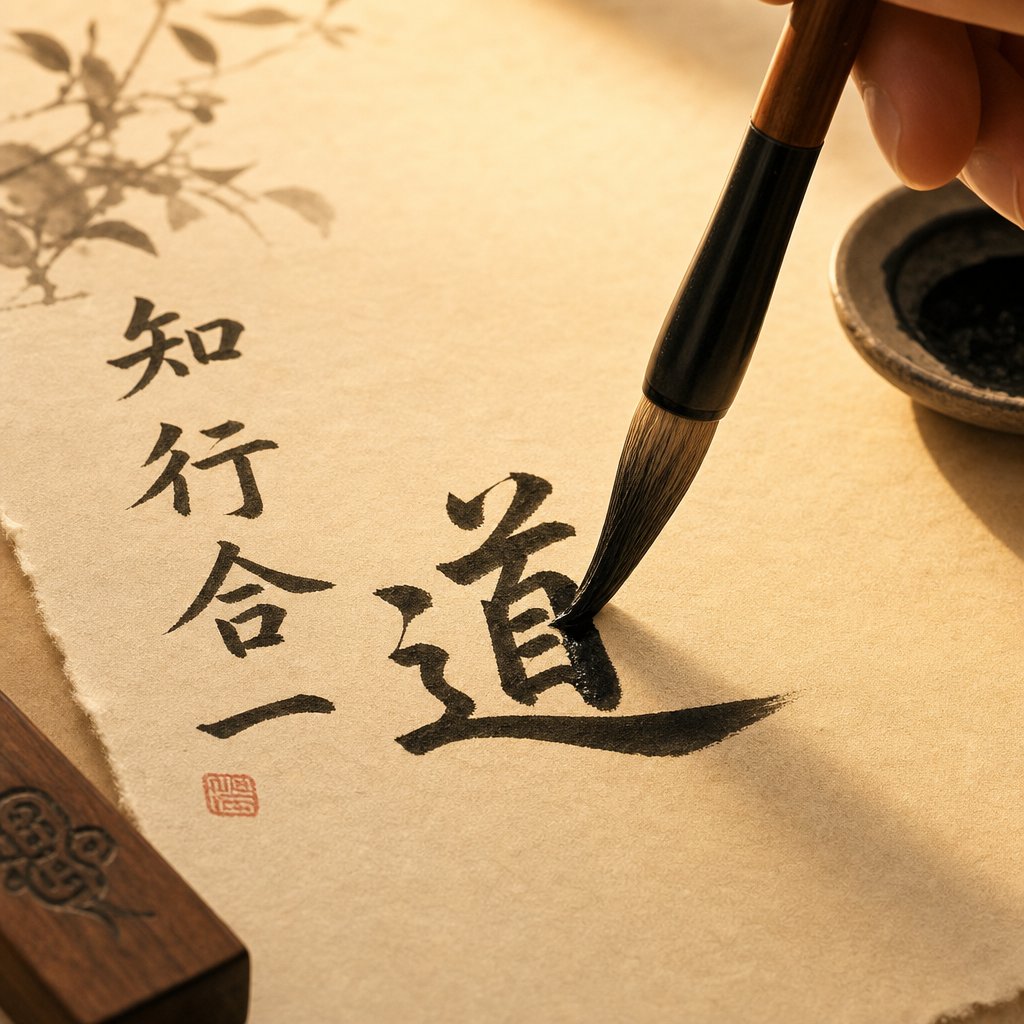 道
知行合一